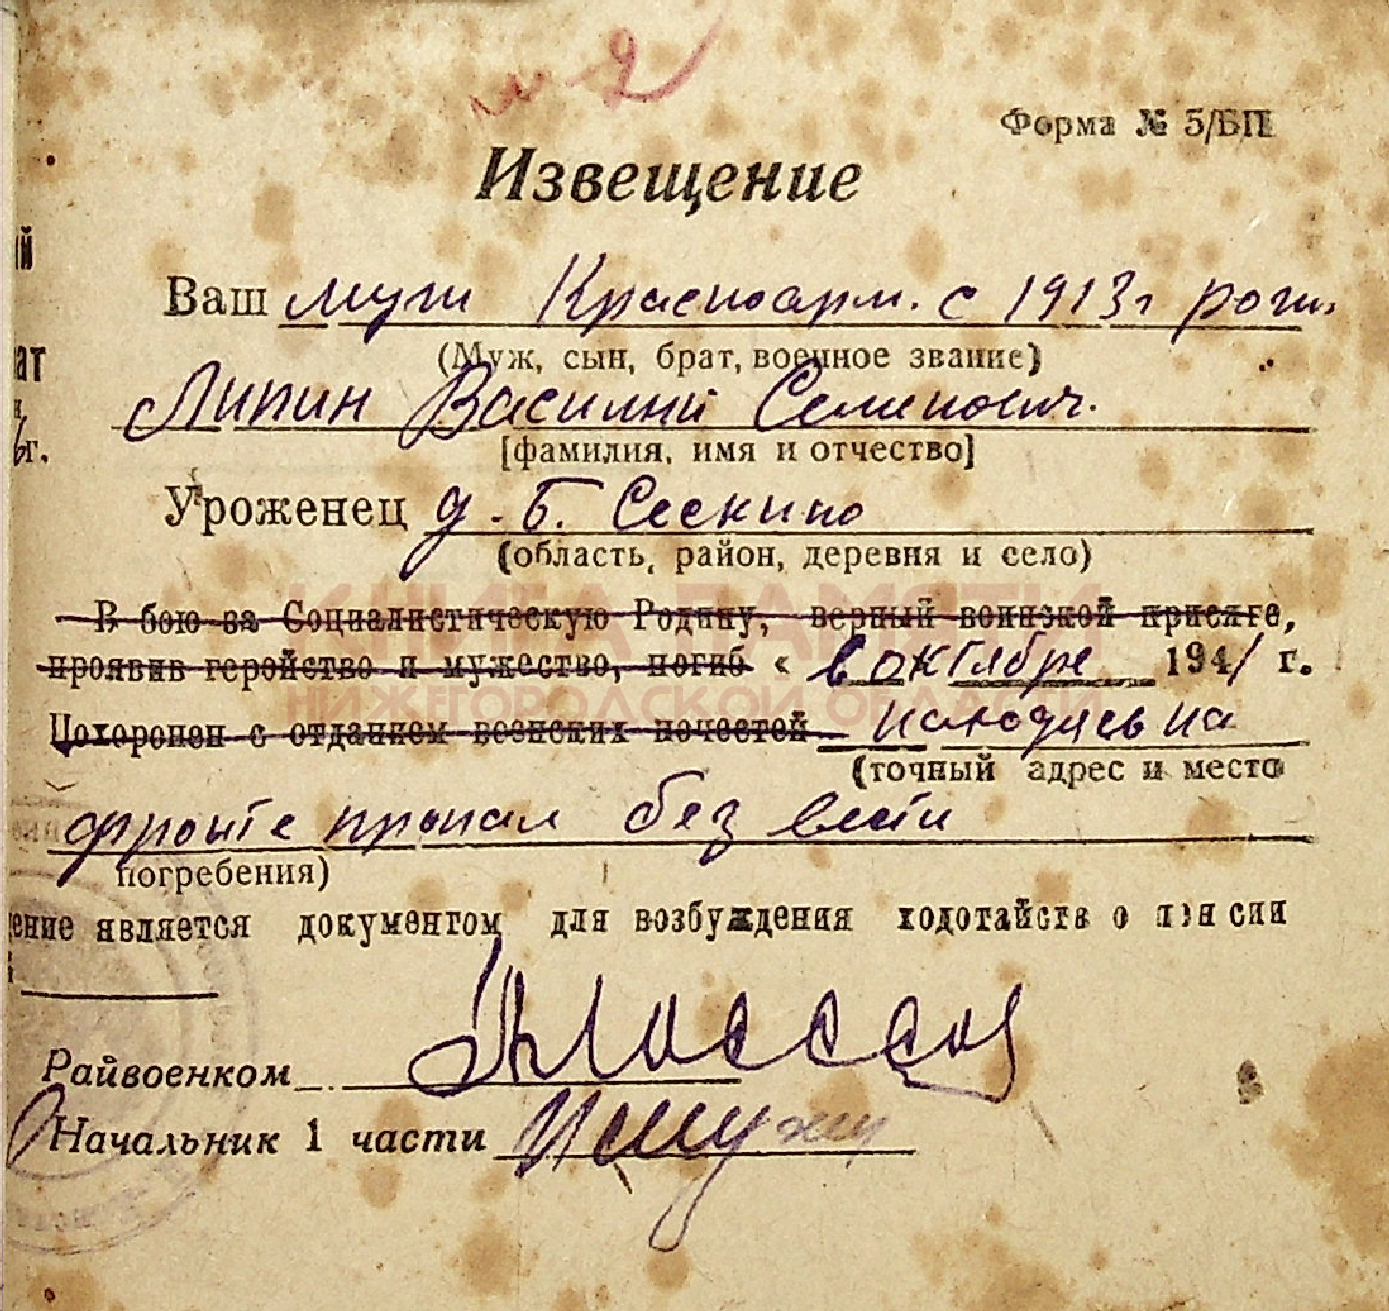 м-2
Форма № 5/БП
Извещение
Ваш муж Красноарм. с 1913 г рожд.
(Муж, сын, брат, военное звание)
Липин Василий Семенович.
[фамилия, имя и отчество]
Уроженец д. Б. Сескино
(область, район, деревня и село)
В бою за Социалистическую Родину, верный воинской присяге,
проявив геройство и мужество, погиб « в октябре 1941 г.
Похоронен с отданием воинских почестей находясь на
(точный адрес и место
фронте пропал без вести
погребения)
ение является документом для возбуждения ходотайств о пэнсии
Райвоенком
Начальник 1 части
ый
ат
н,
г.
КНИГА ПАМЯТИ
НИЖЕГОРОДСКОЙ ОБЛАСТИ